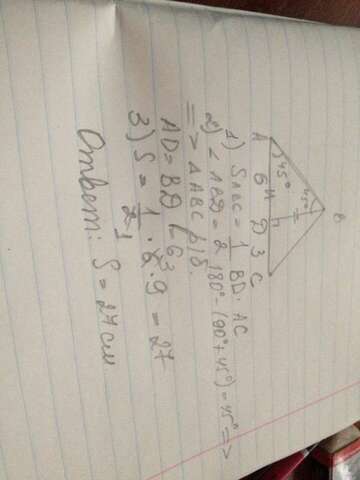 B
45°
45°
A 6 м D 3 C
1) S ABC = 1/2 BD · AC
2) ∠ABD = 180° - (90° + 45°) = 45° =>
=> △ABC р/б.
AD = BD (6)
3) S = 1/2 · 6 · 9 = 27
Ответ: S = 27 см